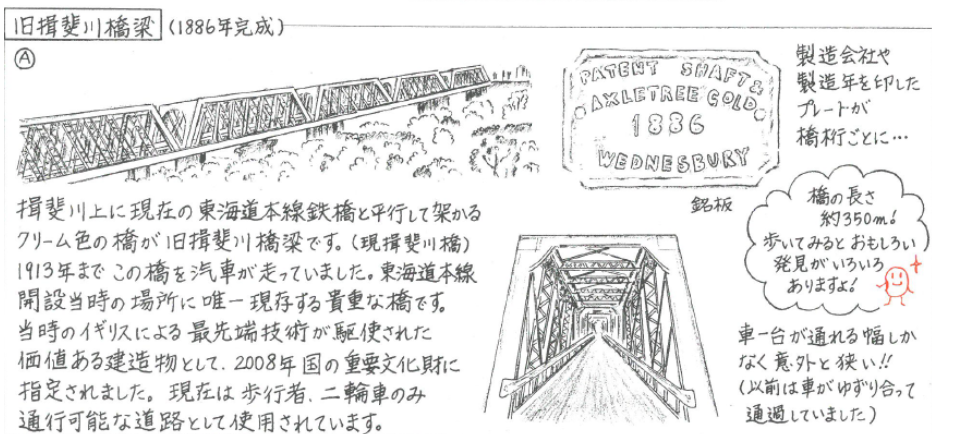 旧揖斐川橋梁 (1886年完成)
Ⓐ
PATENT SHAFT &
AXLETREE COLD
1886
WEDNESBURY
銘板
製造会社や
製造年を印した
プレートが
橋桁ごとに…
揖斐川上に現在の東海道本線鉄橋と平行して架かる
クリーム色の橋が旧揖斐川橋梁です。(現揖斐川橋)
1913年までこの橋を汽車が走っていました。東海道本線
開設当時の場所に唯一現存する貴重な橋です。
当時のイギリスによる最先端技術が駆使された
価値ある建造物として、2008年国の重要文化財に
指定されました。現在は歩行者、二輪車のみ
通行可能な道路として使用されています。
橋の長さ
約350m!
歩いてみるとおもしろい
発見がいろいろ
ありますよ!
車一台が通れる幅しか
なく意外と狭い!!
(以前は車がゆずり合って
通過していました)